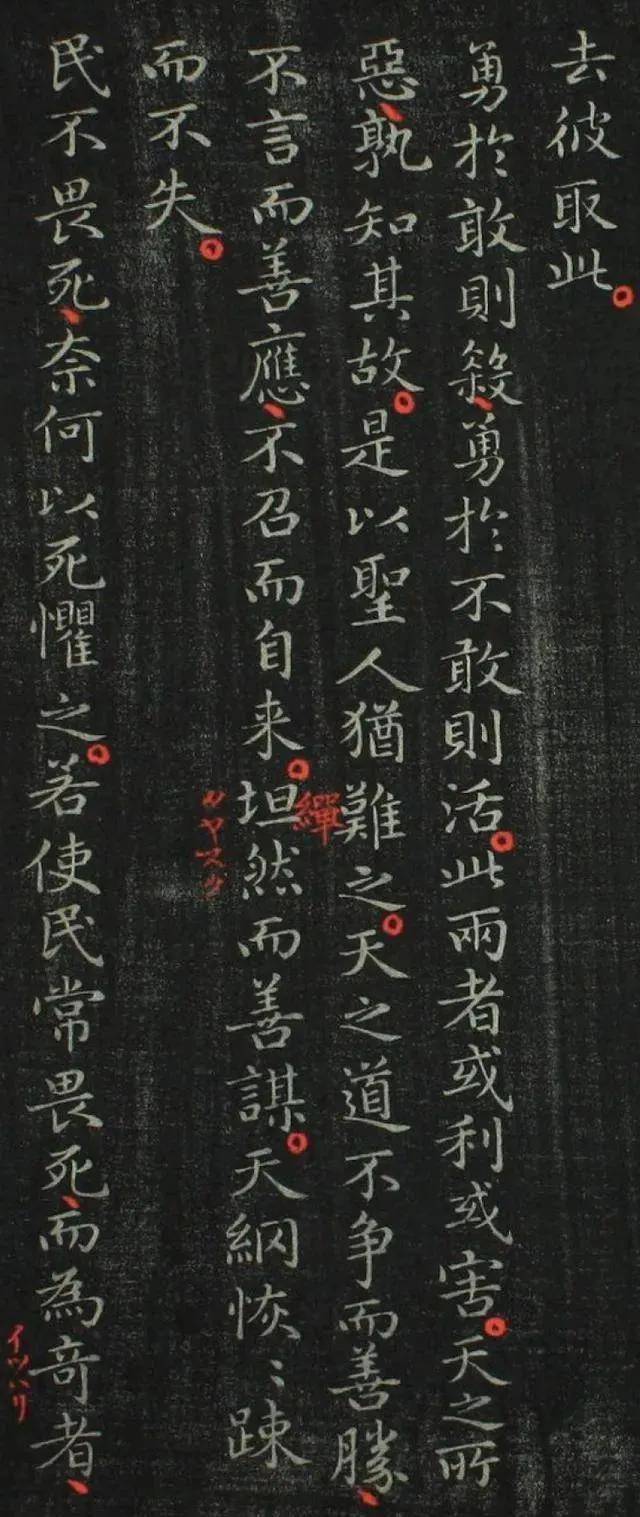 去彼取此。
勇於敢則煞、勇於不敢則活。此兩者或利或害。天之所
惡、孰知其故。是以聖人猶難之。天之道不争而善勝、
不言而善應、不召而自来。坦然而善謀。天網恢〻踈
繟
而不失。
民不畏死、奈何以死懼之。若使民常畏死、而為奇者、
イツハリ